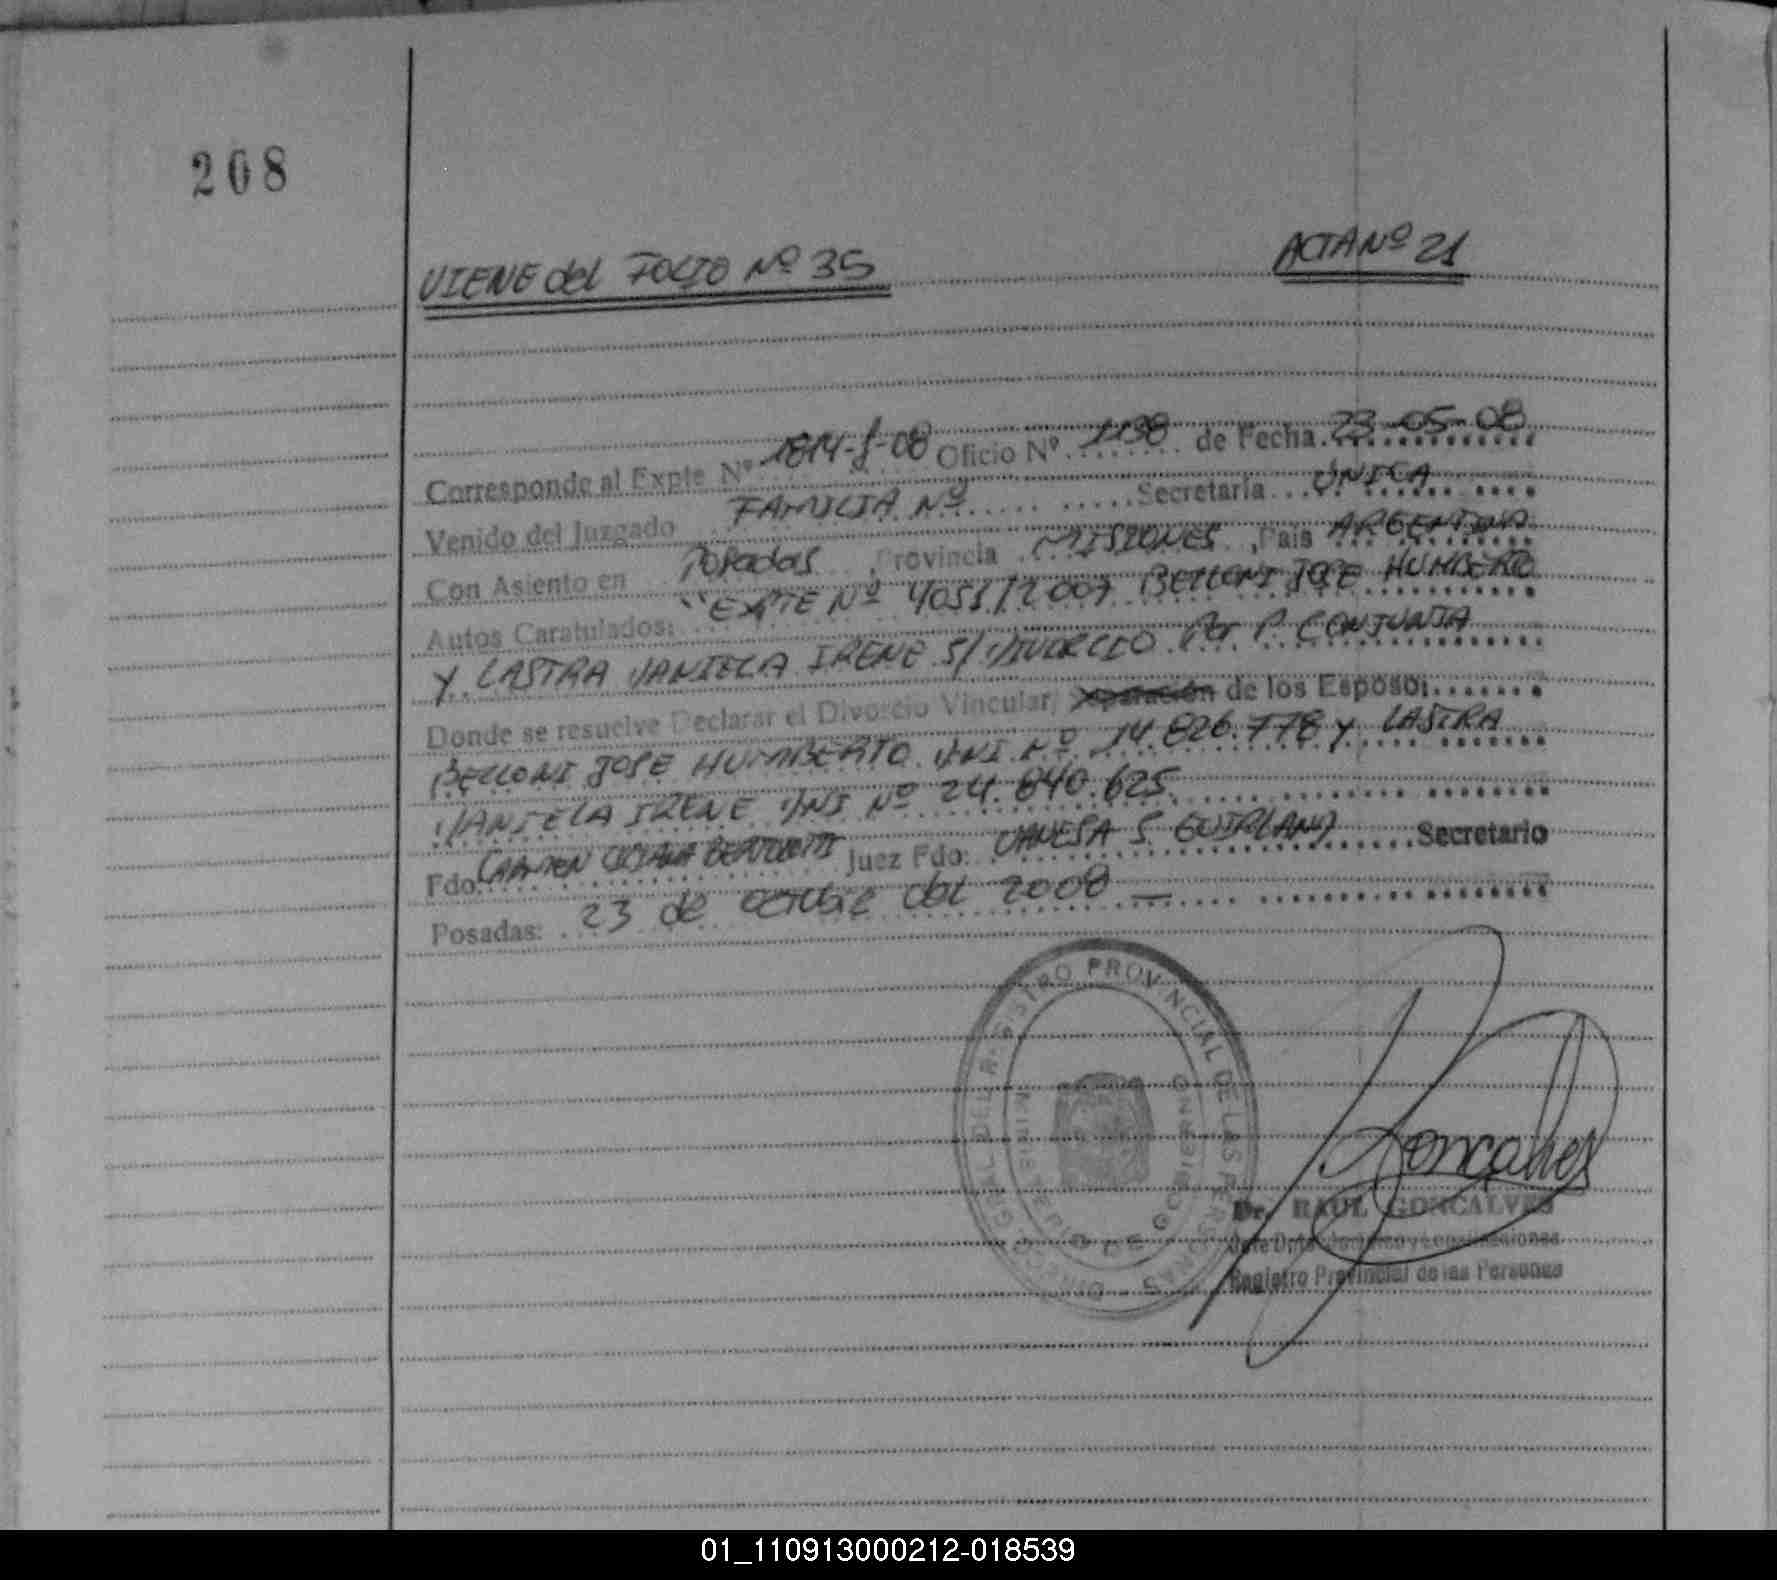 208
VIENE del FOLIO Nº 35
ACTA Nº 21
Corresponde al Expte Nº 1814-J-08 Oficio Nº 1198 de Fecha 23-05-08
Venido del Juzgado FAMILIA Nº Secretaria ÚNICA
Con Asiento en Posadas, Provincia MISIONES, Pais ARGENTINA
Autos Caratulados: "EXPTE Nº 4053/2007 BELLONI JOSE HUMBERTO
Y LASTRA DANIELA IRENE S/DIVORCIO Por P. CONJUNTA
Donde se resuelve Declarar el Divorcio Vincular, Separación de los Esposo:
BELLONI JOSE HUMBERTO DNI Nº 14.826.778 y LASTRA
DANIELA IRENE DNI Nº 24.840.625
Fdo: CARMEN Juez Fdo: VANESA S. Secretario
Posadas: 23 de octubre del 2008 —
DIRECC. GRAL. DEL REGISTRO PROVINCIAL DE LAS PERSONAS
MINISTERIO DE GOBIERNO
Goncalves
Dr. RAUL GONCALVES
Jefe Dpto.
Registro Provincial de las Personas
01_110913000212-018539